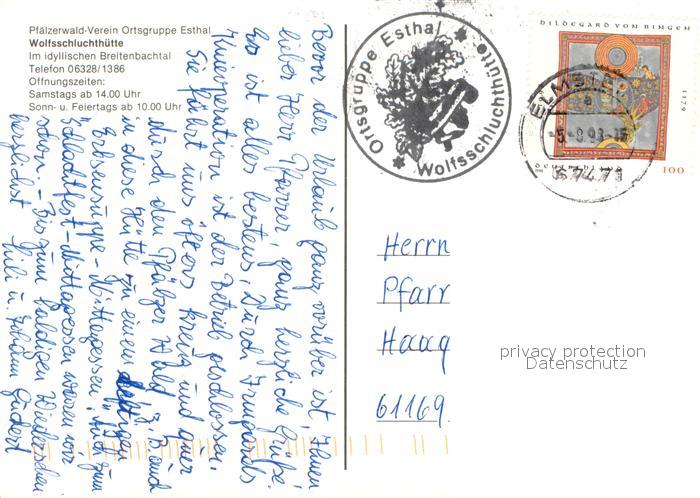 Pfälzerwald-Verein Ortsgruppe Esthal
Wolfsschluchthütte
Im idyllischen Breitenbachtal
Telefon 06328/1386
Öffnungszeiten:
Samstags ab 14.00 Uhr
Sonn- u. Feiertags ab 10.00 Uhr
Bevor der Urlaub ganz vorüber ist, Ihnen
lieber Herr Pfarrer, ganz herzliche Grüße.
Es ist alles bestens, durch Irmgards
Knieoperation ist der Betrieb geschlossen.
Sie fährt uns öfters kreuz und quer
durch den Pfälzer Wald z.B. auch
in diese Hütte zu einem deftigen
Erbsensuppe-Mittagessen, auch zum
Schlachtfest-Mittagessen waren wir
schon. - Bis zum baldigen Wiedersehen
Ortsgruppe Esthal
Wolfsschluchthütte
HILDEGARD VON BINGEN
1179
100
ELMSTEIN
67471
Herrn
Pfarr
Haag
61169
privacy protection
Datenschutz